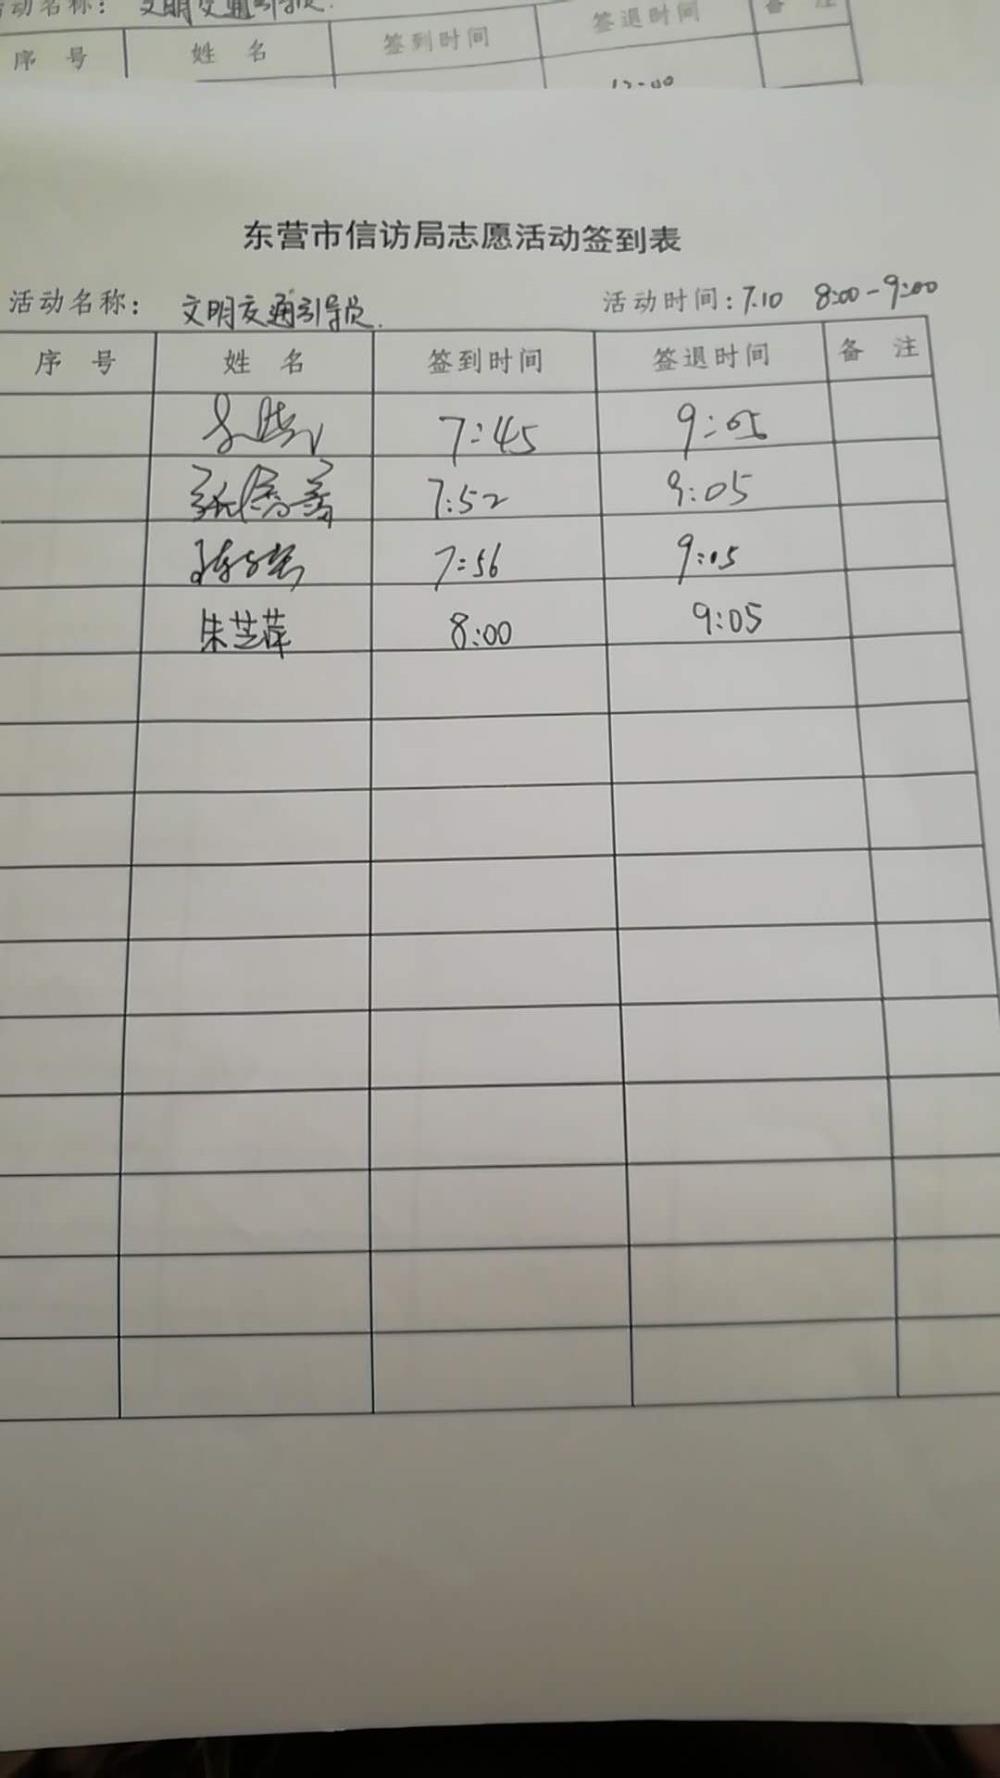 活动名称： 文明交通引导员.
序 号 姓 名 签到时间 签退时间 备 注
12:00
东营市信访局志愿活动签到表
活动名称： 文明交通引导员. 活动时间：7.10 8:00-9:00
序 号 姓 名 签到时间 签退时间 备 注
7:45 9:05
7:52 9:05
7:56 9:05
朱芝萍 8:00 9:05